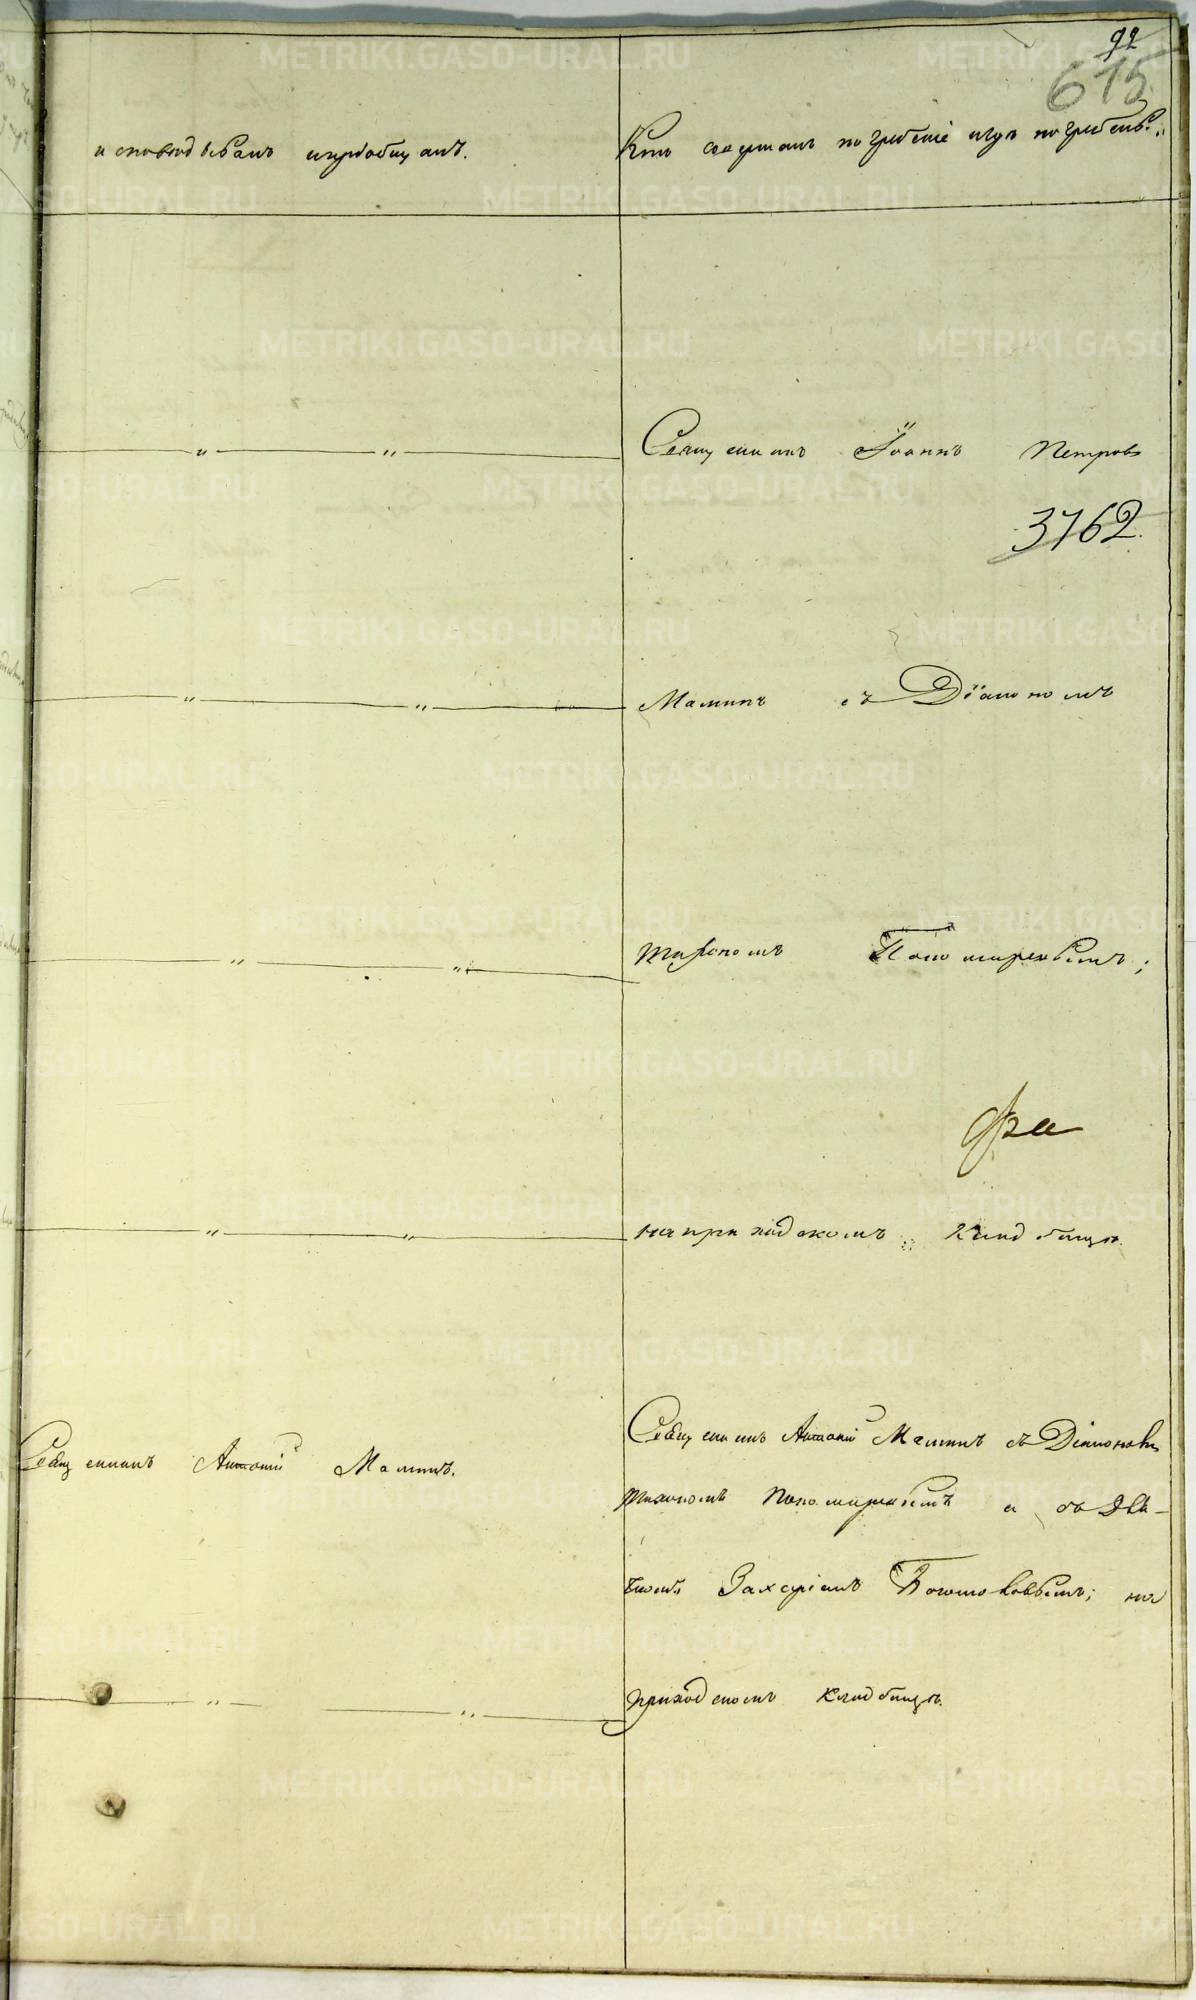 92
615
исповѣдывалъ и приобщалъ.
Кто совершалъ погребеніе и гдѣ погребены.
Священникъ Іоаннъ Петровъ
3762.
Маминъ съ Діакономъ
Тихономъ Пономаревымъ;
на приходскомъ кладбищѣ.
Священникъ Антоній Маминъ.
Священникъ Антоній Маминъ съ Діакономъ
Тихономъ Пономаревымъ и съ Дья-
чкомъ Захаріемъ Богомоловымъ; на
приходскомъ кладбищѣ.
METRIKI.GASO-URAL.RU